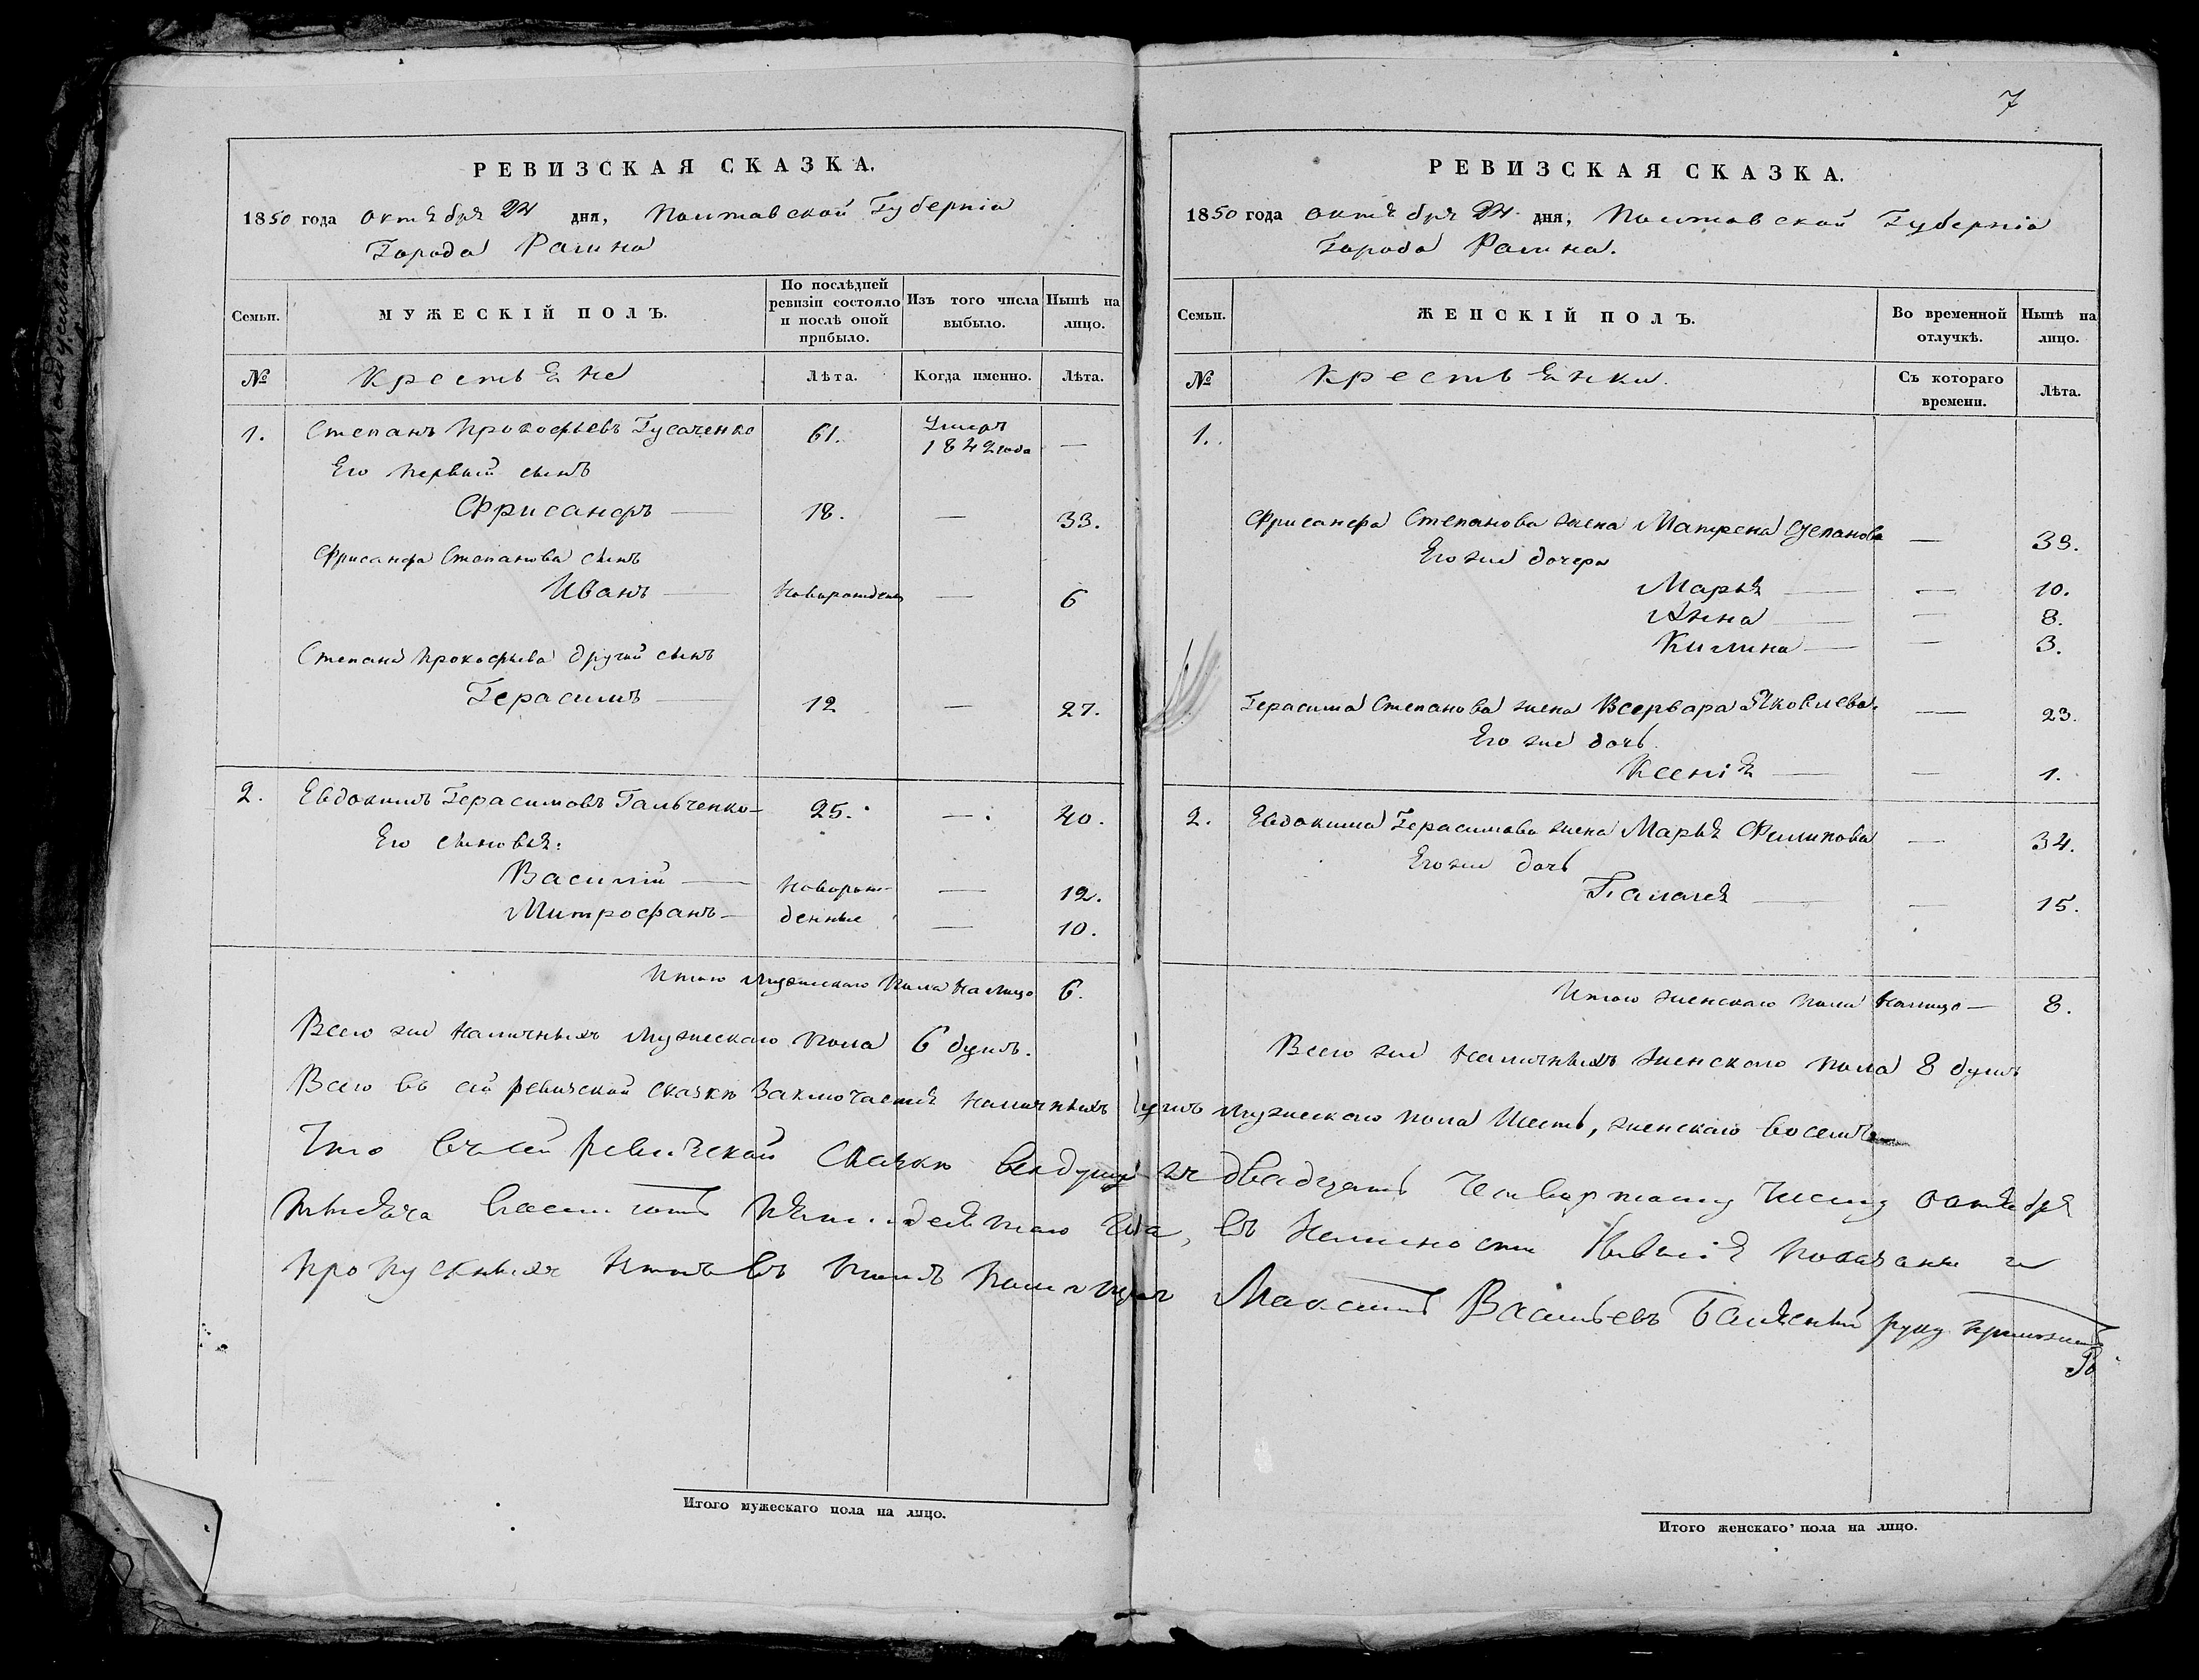 7
РЕВИЗСКАЯ СКАЗКА.
1850 года октября 24 дня, Полтавской Губерніи
Города Ромна
Семьи.
МУЖЕСКІЙ ПОЛЪ.
По послѣдней ревизіи состояло и послѣ оной прибыло.
Изъ того числа выбыло.
Нынѣ на лицо.
№
Крестьяне
Лѣта.
Когда именно.
Лѣта.
1. Степанъ Прокофьевъ Гусаченко 61. Умеръ 1842 года —
Его первый сынъ
Фрисанфъ — 18. — 33.
Фрисанфа Степанова сынъ
Иванъ — новорожденъ — 6
Степана Прокофьева другій сынъ
Герасимъ — 12 — 27.
2. Евдокимъ Герасимовъ Гальченко — 25. — 40.
Его сыновья:
Василій — новорож- — 12.
Митрофанъ — денные — 10.
Итого мужескаго пола на лицо 6.
Всего же наличныхъ мужескаго пола 6 душъ.
РЕВИЗСКАЯ СКАЗКА.
1850 года октября 24 дня, Полтавской Губерніи
Города Ромна.
Семьи.
ЖЕНСКІЙ ПОЛЪ.
Во временной отлучкѣ.
Нынѣ на лицо.
№
Крестьянки.
Съ котораго времени.
Лѣта.
1.
Фрисанфа Степанова жена Матрена Степанова — 33.
Его же дочери
Марья — — 10.
Анна — — 8.
Килина — — 3.
Герасима Степанова жена Варвара Яковлева — 23.
Его же дочь
Ксенія — — 1.
2. Евдокима Герасимова жена Марья Филипова — 34.
Его же дочь
Палагея — — 15.
Итого женскаго пола налицо — 8.
Всего же наличныхъ женскаго пола 8 душъ
Всего въ сей ревизской сказкѣ заключается наличныхъ душъ мужескаго пола шесть, женскаго восемь
Что въ сей ревизской сказкѣ двадцать четвертому числу октября
тысяча восемь сотъ года, въ наличности показаны и
пропускныхъ нѣтъ въ томъ Максимъ Васильевъ руку приложилъ
Итого мужескаго пола на лицо.
Итого женскаго пола на лицо.